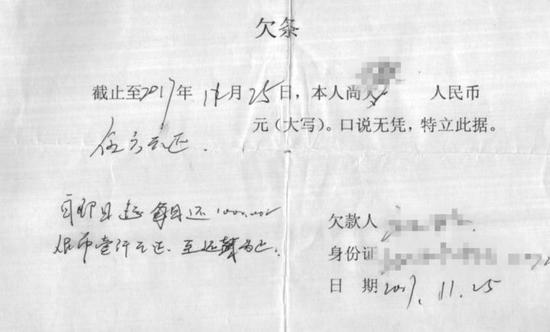 欠条
截止至2017年11月25日，本人尚欠 人民币
伍万元正. 元（大写）。口说无凭，特立此据。
自即日起 每月还1000.00
人民币壹仟元正. 至还清为止.
欠款人
身份证
日 期 2017.11.25